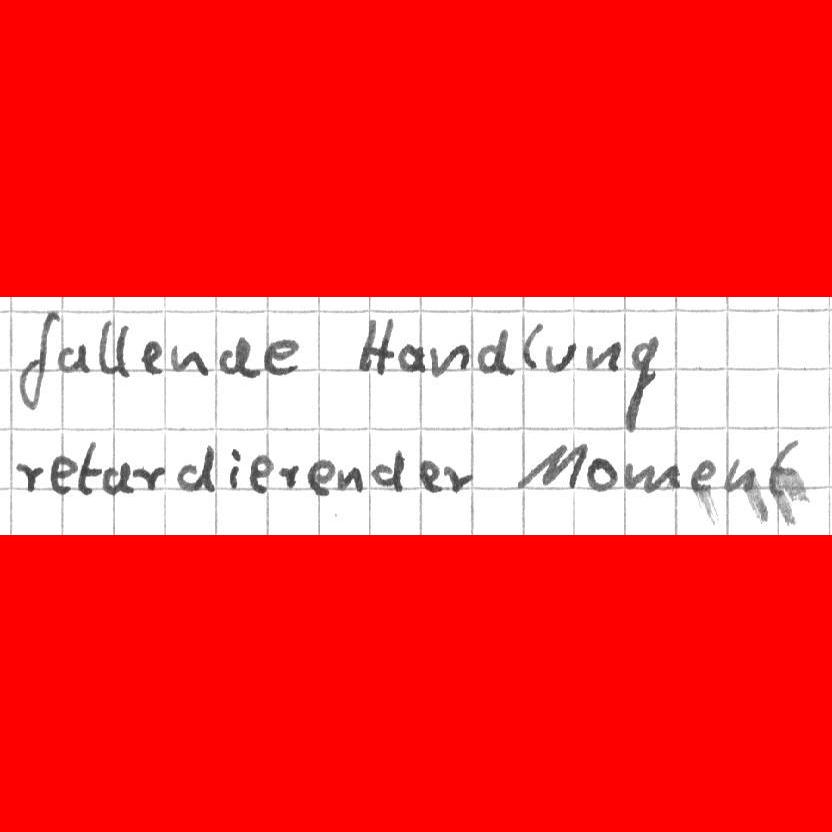 fallende Handlung
retardierender Moment